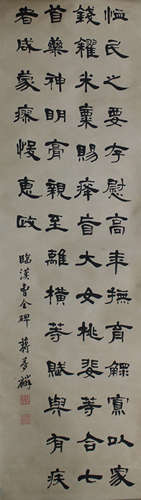 恤民之要存慰高年撫育鰥寡以家
錢糴米粟賜癃盲大女桃婓等合七
首藥神明膏親至離橫等賦與有疾
者咸蒙瘳悛惠政
臨漢曹全碑 蔣